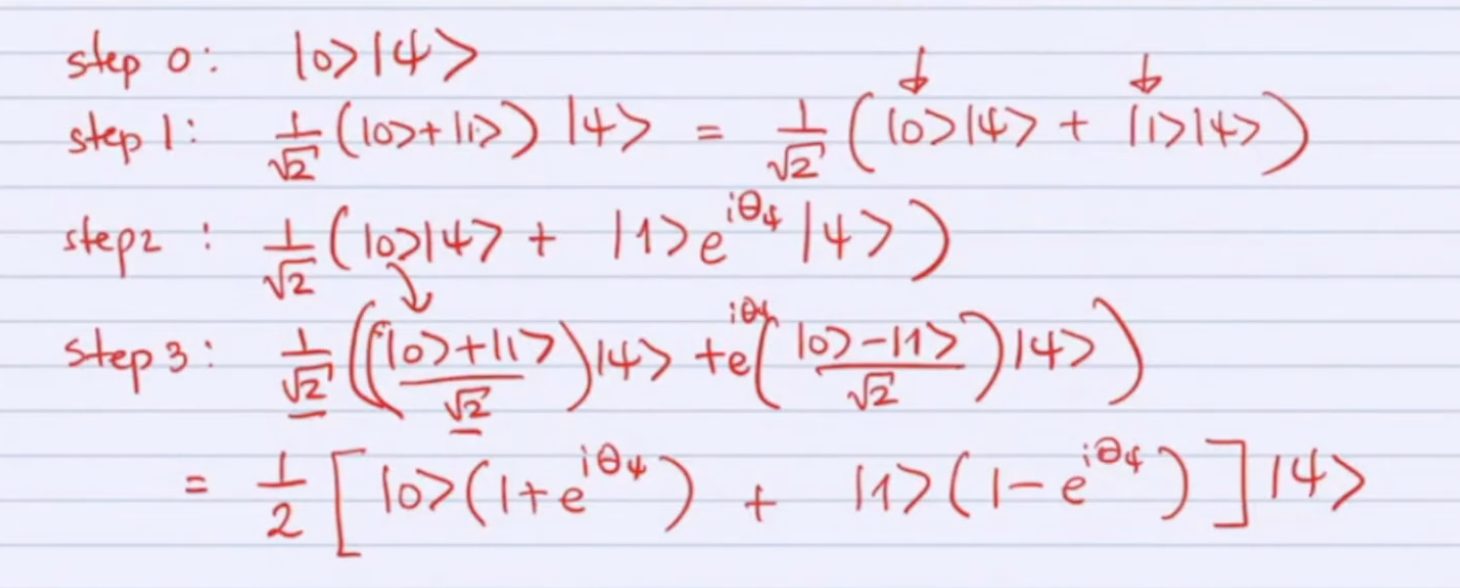 step 0: |0>|ψ>
step 1: 1/√2 (|0>+|1>) |ψ> = 1/√2 (|0>|ψ> + |1>|ψ>)
step2 : 1/√2 (|0>|ψ> + |1>e^{iθ_ψ} |ψ>)
step3: 1/√2 (((|0>+|1>)/√2)|ψ> + e^{iθ_ψ}((|0>-|1>)/√2)|ψ>)
= 1/2 [|0>(1+e^{iθ_ψ}) + |1>(1-e^{iθ_ψ})]|ψ>